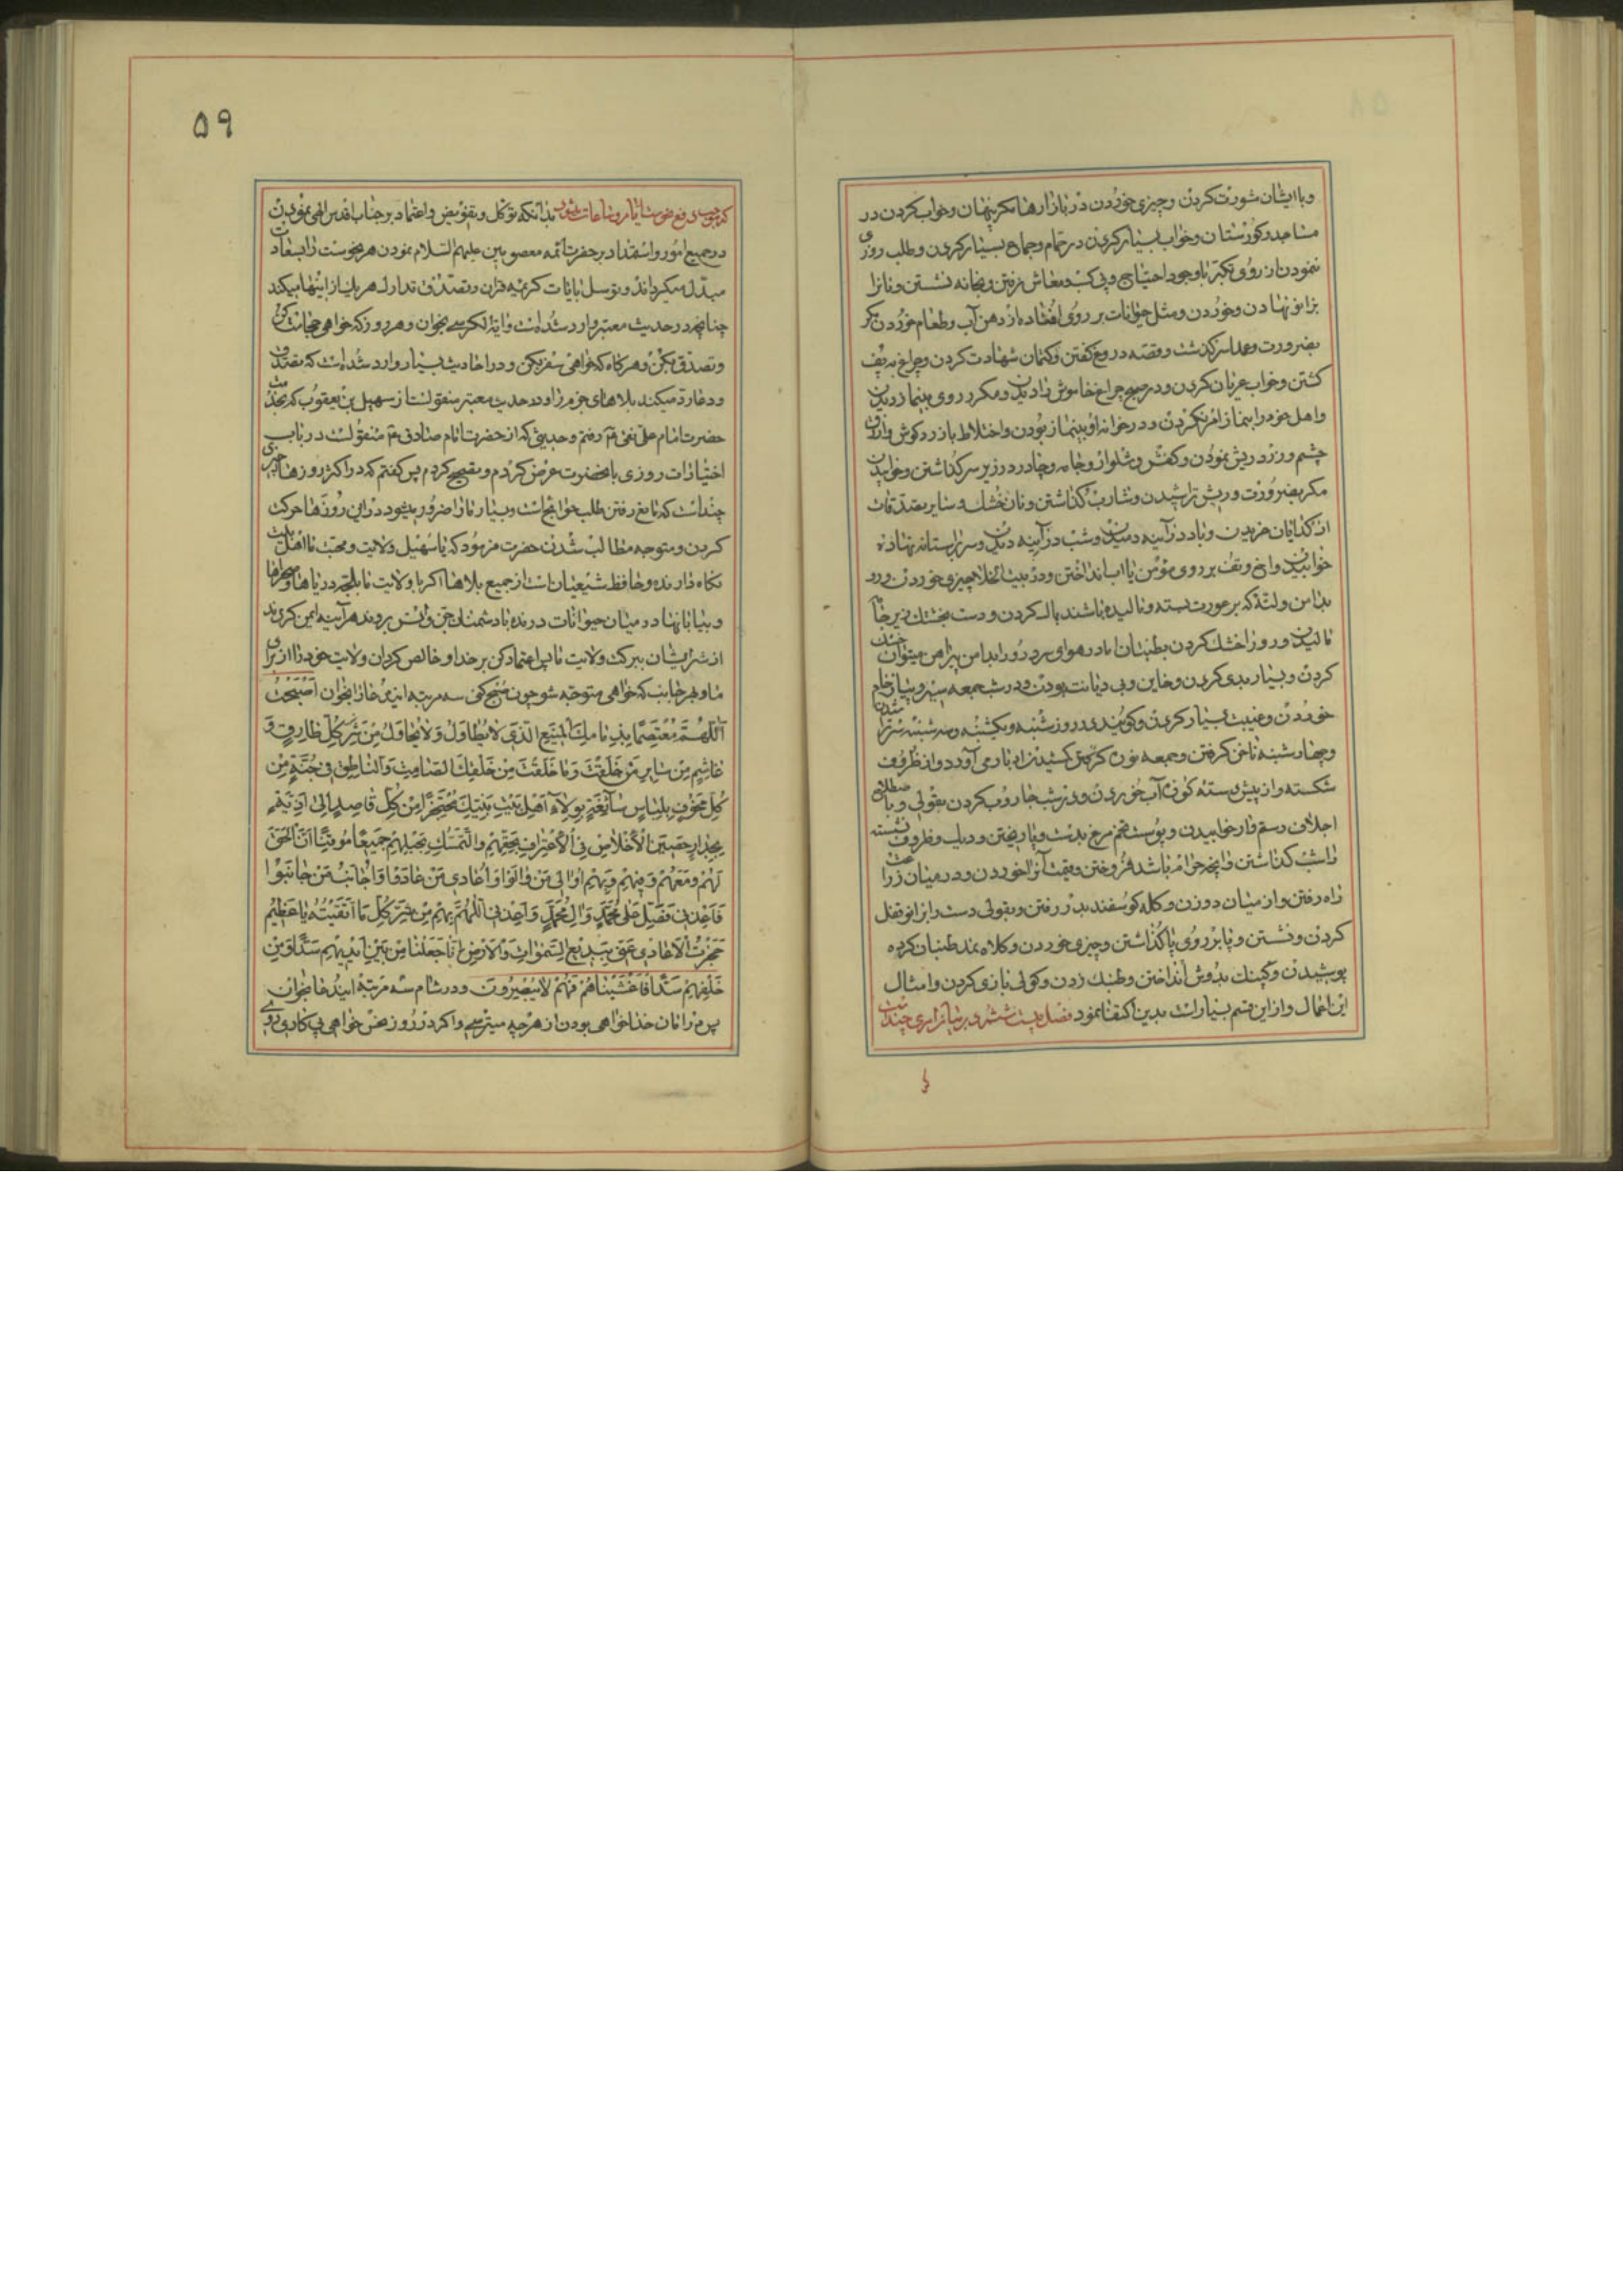 و با ایشان مشورت کردن و چیزی خوردن در بازارها مگر پنهان و خواب کردن در
مساجد و کورستان و خواب بسیار کردن در حمام و جماع بسیار کردن و طلب روزی
ننمودن از روی تکبر با وجود احتیاج و پی کسب معاش نرفتن و بخانه نشستن و نانرا
بزانو نهادن و خوردن و مثل حیوانات بر روی افتاده از دهن آب و طعام خوردن مگر
بضرورت و سرکذشت و قصه دروغ کفتن و کتمان شهادت کردن و چراغ به پف
کشتن و خواب عریان کردن و در صبح چراغ خاموش را دیدن و مکرر روی بینماز دیدن
و اهل خود را بنماز امر نکردن و در خانه او بینماز بودن و اختلاط با زرد کوش و ازرق
چشم و زرد ریش نمودن و کفش و شلوار و جامه و چادر در زیر سر کذاشتن و خوابیدن
مکر بضرورت و ریش تراشیدن و شارب کذاشتن و نان خشک و سایر تصدقات
از کدایان خریدن و باد در آینه دمیدن و شب در آینه دیدن و سر بر آستانه نهاده
خوابیدن و اخ و تف بر روی مؤمن یا آب انداختن و در بیت الخلا چیزی خوردن و رو
بدامن و لته که بر عورت بسته و مالیده باشند پاک کردن و دست بخشتک زیر جامه
مالیدن و رو را خشک کردن بطنبان اما در هوای سرد رو را بدامن پیراهن میتوان خشک
کردن و بسیار بدی کردن و خاین و بی دیانت بودن و در شب جمعه سیر و پیاز خام
خوردن و غیبت بسیار کردن و کویند در روز شنبه و یکشنبه و سه شنبه سر تراشیدن
و چهارشنبه ناخن کرفتن و جمعه نوره کشیدن ادبار می آورد و از ظروف
شکسته و از پیش دسته کوزه آب خوردن و در شب جاروب کردن بقولی و با
اجلاف رستم وار خوابیدن و پوست تخم مرغ بدست و پا ریختن و دیک و ظروف نشسته
را شب کذاشتن و آنچه حرام باشد فروختن و قیمت آنرا خوردن و در میان زراعت
راه رفتن و از میان دو زن و کله کوسفند بدر رفتن و بقولی دست را بزانو قفل
کردن و نشستن و پا بر روی پا کذاشتن و چیزی خوردن و کلاه نمد طنبان کرده
پوشیدن و کپنک بدوش انداختن و طنبک زدن و کولی بازی کردن و امثال
این اعمال و از این قسم بسیار است بدین اکتفا نمود فصل بیست ششم در بیان قراری چند است
۵۹
که موجب رفع نحوست ایام و ساعات شود بدانکه توکل و تفویض و اعتماد بر جناب اقدس الهی نمودن
در جمیع امور و استمداد بر حضرت ائمه معصومین علیهم السلام نمودن هر نحوست را بسعادت
مبدل میکرداند و توسل بآیات کریمه قران و تصدق تدارک هر یک از اینها میکند
چنانچه در حدیث معتبر وارد شده است و آیة الکرسی بخوان و هر روز که خواهی حجامت کن
و تصدق بکن و هرکاه که خواهی سفر بکن و در احادیث بسیار وارد شده است که تصدق
و دعا رد میکند بلاهای مبرم را و در حدیث معتبر منقولست از سهیل بن یعقوب که بخدمت
حضرت امام علی نقی ع رفتم و حدیثی که از حضرت امام صادق ع منقولست در باب
اختیارات روزی بآنحضرت عرض کردم و تصحیح کردم پس کفتم که در اکثر روزها چیزی
چند است که مانع رفتن طلب حوایج است و بسیار ما را ضرور میشود در این روزها حرکت
کردن و متوجه مطالب شدن حضرت فرمود که یا سهیل ولایت و محبت ما اهل بیت
نکاه دارنده و حافظ شیعیان است از جمیع بلاها اگر با ولایت ما بلجه دریاها و صحراها
و بیابانها و در میان حیوانات درنده با دشمنان جن و انس بروند هر آینه ایمن کردند
از شر ایشان ببرکت ولایت ما پس اعتماد کن بر خدا و خالص کردان ولایت خود را از برای
ما و بهر جانب که خواهی متوجه شو چون صبح کنی سه مرتبه این دعا را بخوان اَصْبَحْتُ
اَللّهُمَّ مُعْتَصِمًا بِذِمَامِكَ الْمَنِیعِ الَّذِی لَا یُطَاوَلُ وَلَا یُحَاوَلُ مِنْ شَرِّ کُلِّ طَارِقٍ وَ
غَاشِمٍ مِنْ سَایِرِ مَنْ خَلَقْتَ وَمَا خَلَقْتَ مِنْ خَلْقِكَ الصَّامِتِ وَالنَّاطِقِ فِی جُنَّةٍ مِنْ
کُلِّ مَخُوفٍ بِلِبَاسٍ سَابِغَةٍ بِوِلَاءِ اَهْلِ بَیْتِ نَبِیِّكَ مُحْتَجِزًا مِنْ کُلِّ قَاصِدٍ اِلیٰ اَذِیَّتِهِ
بِجِدَارٍ حَصِینِ الْاِخْلَاصِ فِی الْاِعْتِرَافِ بِحَقِّهِمْ وَالتَّمَسُّكِ بِحَبْلِهِمْ جَمِیعًا مُوقِنًا اَنَّ الْحَقَّ
لَهُمْ وَمَعَهُمْ وَفِیهِمْ وَبِهِمْ اُوَالِی مَنْ وَالَوْا وَ اُعَادِی مَنْ عَادَوْا وَ اُجَانِبُ مَنْ جَانَبُوا
فَصَلِّ عَلیٰ مُحَمَّدٍ وَ الِ مُحَمَّدٍ وَ اَعِذْنِی اَللّهُمَّ بِهِمْ مِنْ شَرِّ کُلِّ مَا اَتَّقِیهِ یَا عَظِیمُ
حَجَزْتُ الْاَعَادِیَ عَنِّی بِبَدِیعِ السَّمٰوَاتِ وَالْاَرْضِ اِنَّا جَعَلْنَا مِنْ بَیْنِ اَیْدِیهِمْ سَدًّا وَمِنْ
خَلْفِهِمْ سَدًّا فَاَغْشَیْنَاهُمْ فَهُمْ لَا یُبْصِرُونَ و در شام سه مرتبه این دعا بخوان
پس در امان خدا خواهی بودن از هر چه میترسی و اگر در روز نحس خواهی پی کاری روی